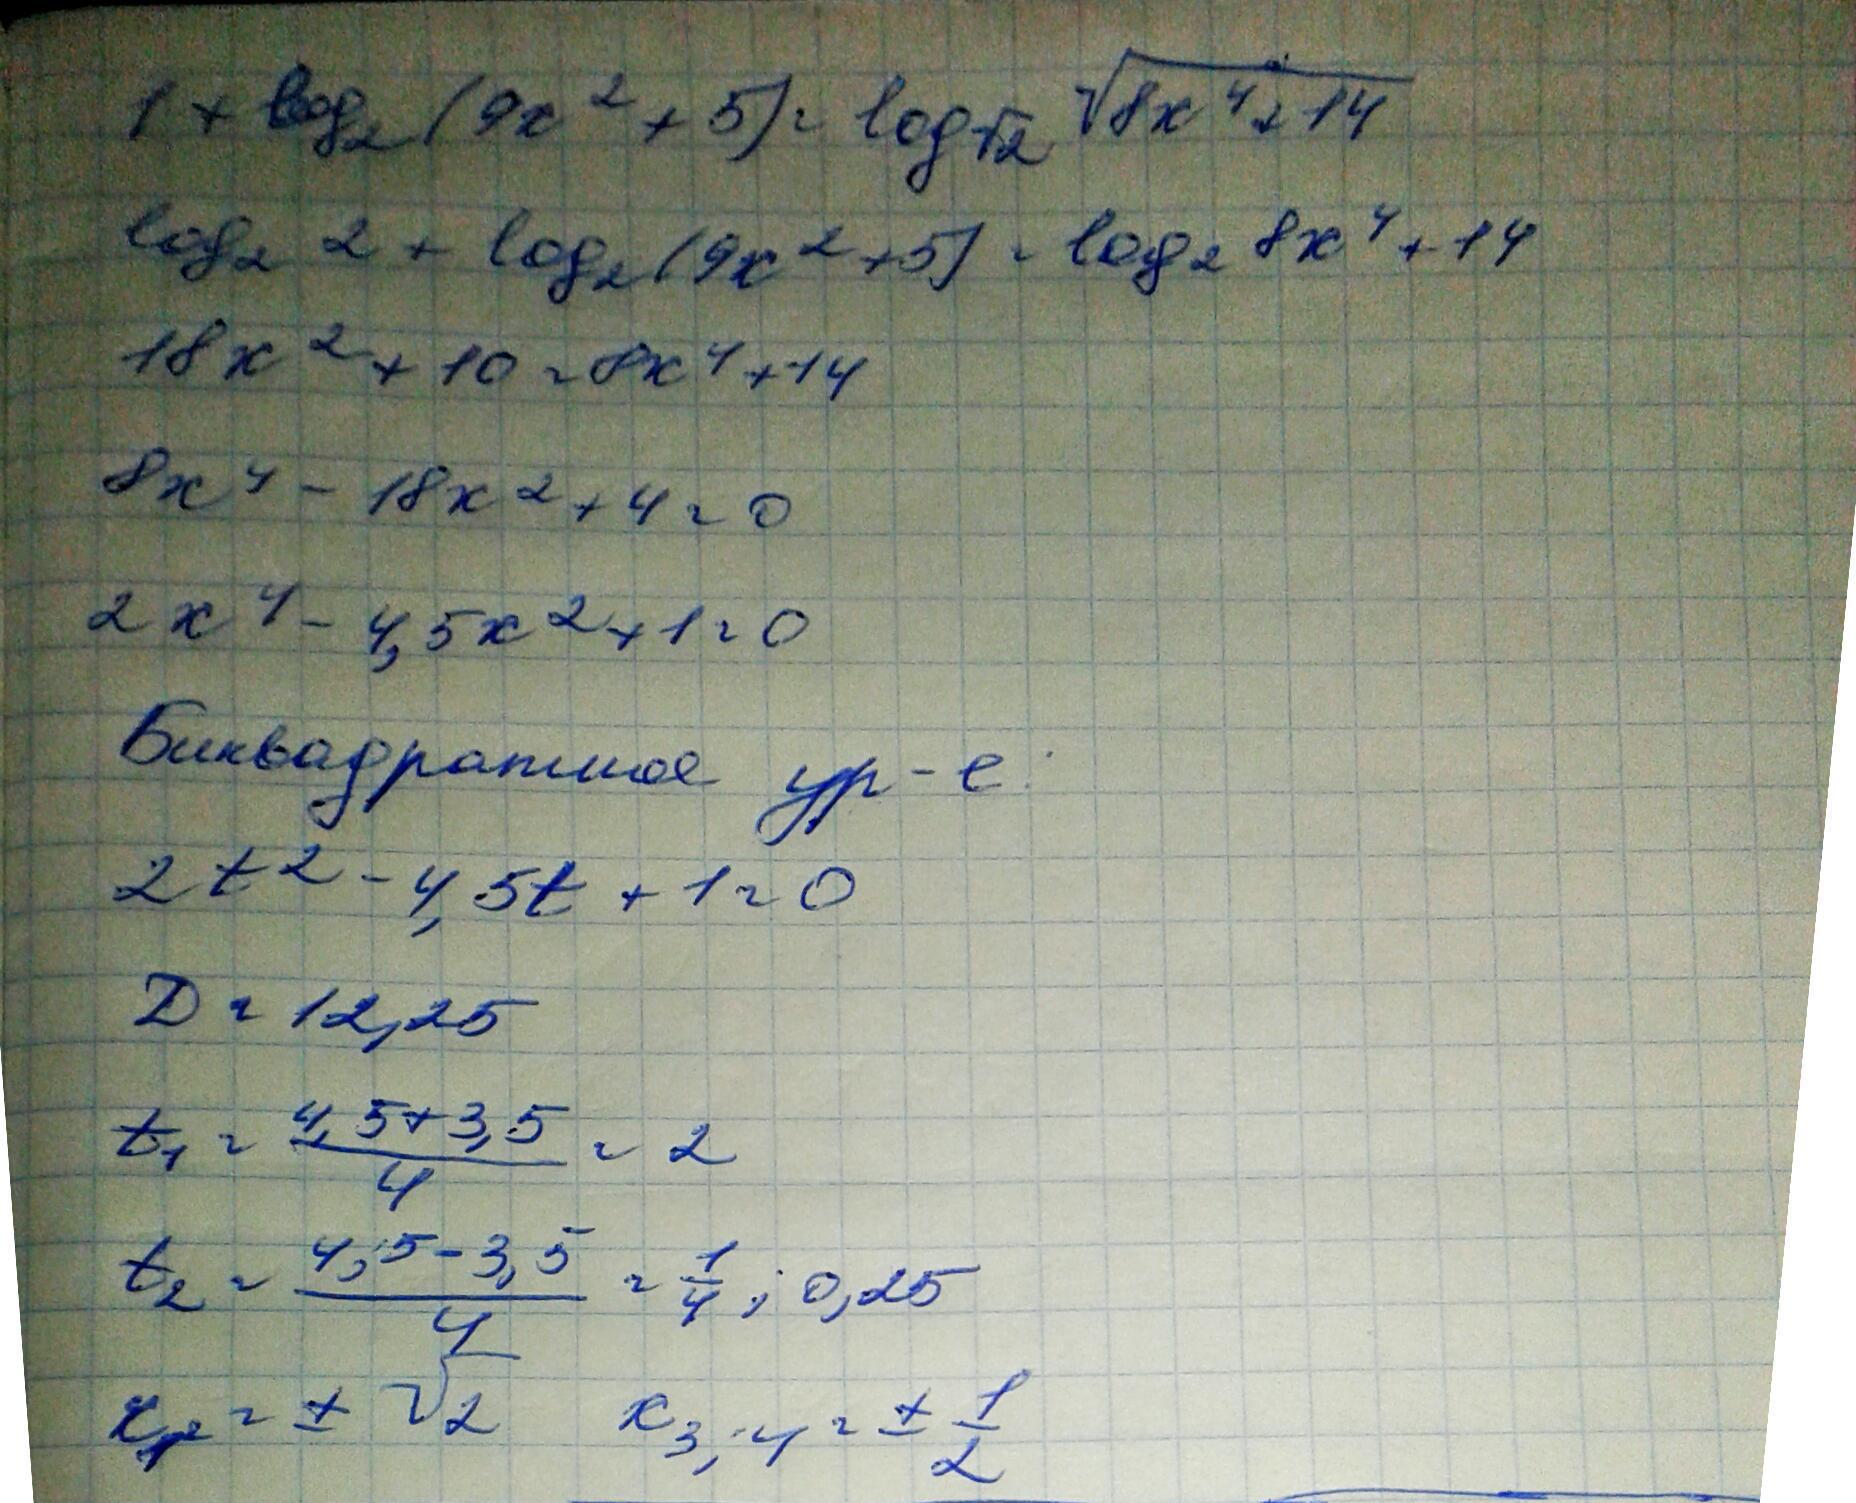 1 + log₂(9x² + 5) = log_√2 √(8x⁴ + 14)
log₂ 2 + log₂(9x² + 5) = log₂ 8x⁴ + 14
18x² + 10 = 8x⁴ + 14
8x⁴ - 18x² + 4 = 0
2x⁴ - 4,5x² + 1 = 0
Биквадратное ур-е:
2t² - 4,5t + 1 = 0
D = 12,25
t₁ = (4,5+3,5)/4 = 2
t₂ = (4,5-3,5)/4 = 1/4; 0,25
x₁,₂ = ± √2 x₃,₄ = ± 1/2